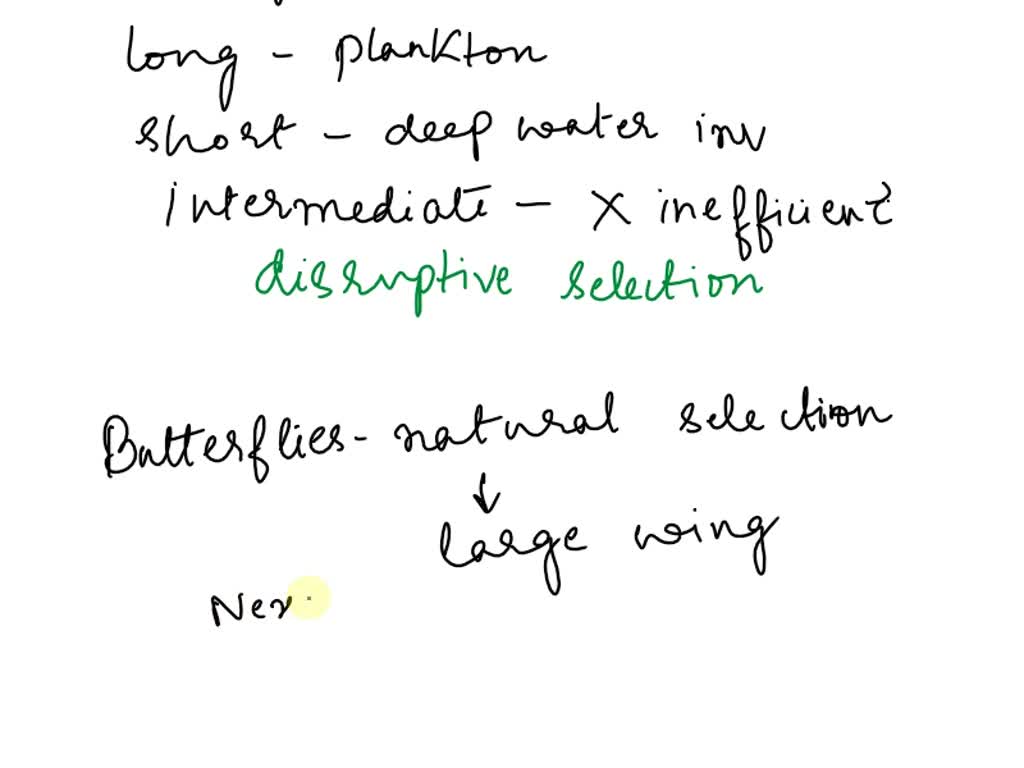 long - plankton
short - deep water inv
intermediate - X inefficient
disruptive selection
Butterflies - natural selection
↓
large wing
Nex